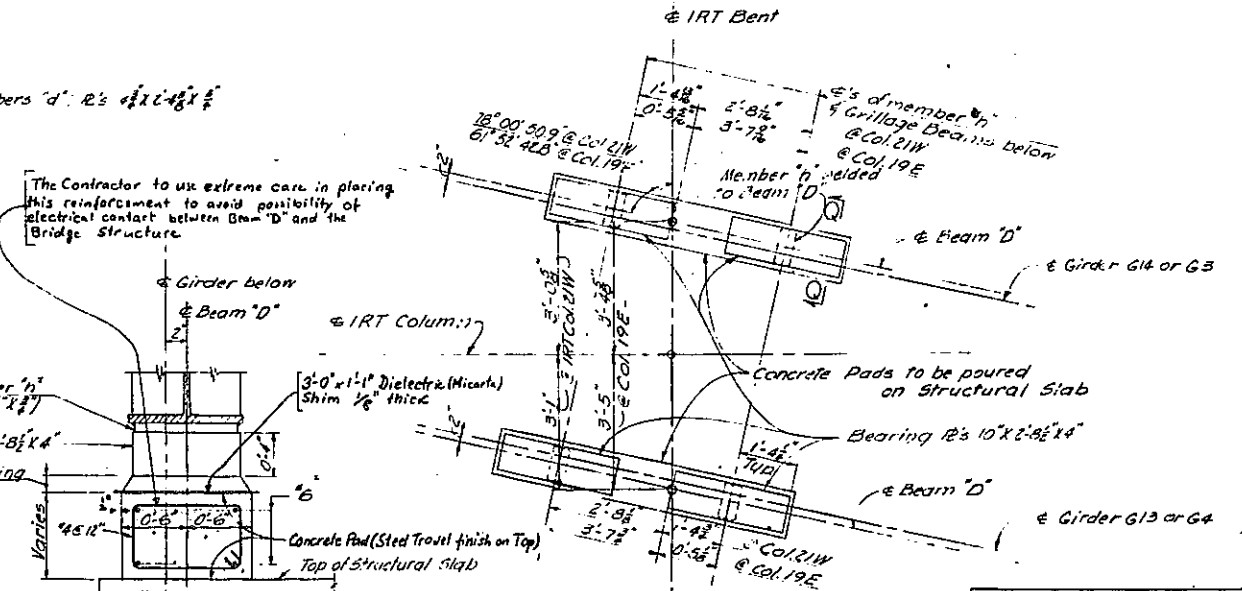 ℄ IRT Bent
bers "d": ℞'s
The Contractor to use extreme care in placing
this reinforcement to avoid possibility of
electrical contact between Beam "D" and the
Bridge Structure
℄ Girder below
℄ Beam "D"
2"
3'-0" x 1'-1" Dielectric (Micarta)
Shim 1/8" thick
er "h"
-8½" x 4"
0'-4"
ing
Varies
"4@12"
0'-6" 0'-6"
"6"
Concrete Pad (Steel Trowel finish on Top)
Top of Structural Slab
78° 00' 50.9" @ Col. 21W
61° 52' 42.8" @ Col. 19E
1'-4 13/16"
2'-8 1/16"
3'-7 9/16"
℄'s of member "h"
& Grillage Beams below
@ Col. 21W
@ Col. 19E
Member "h" welded
to Beam "D"
Q
Q
2"
℄ Beam "D"
℄ Girder G14 or G3
℄ IRT Column
@ Col. 19E
3'-1"
3'-5"
Concrete Pads to be poured
on Structural Slab
Bearing ℞'s 10" x 2'-8½" x 4"
1'-4½"
Typ
2"
℄ Beam "D"
℄ Girder G13 or G4
2'-8⅛"
1'-4¾"
@ Col. 21W
@ Col. 19E